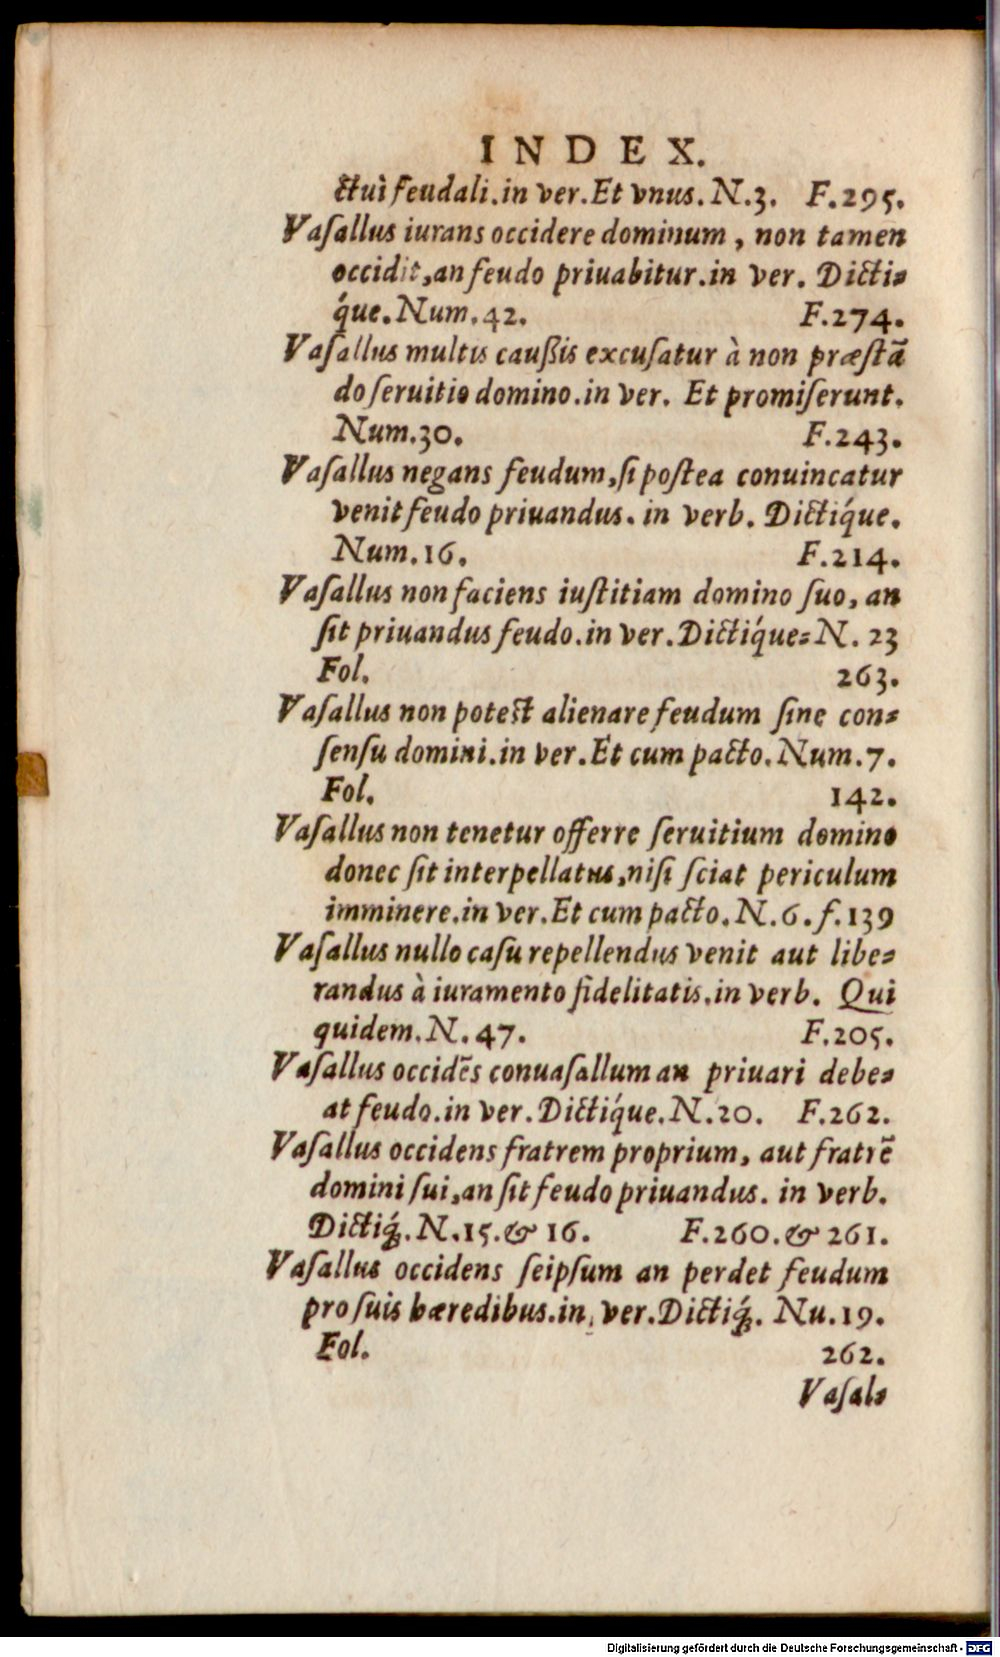 INDEX.
ctui feudali.in ver.Et vnus.N.3. F.295.
Vaſallus iurans occidere dominum, non tamen
occidit,an feudo priuabitur.in ver. Dicti⸗
q́ue.Num.42. F.274.
Vaſallus multis caußis excuſatur à non præſtā
do ſeruitio domino.in ver. Et promiſerunt.
Num.30. F.243.
Vaſallus negans feudum,ſi poſtea conuincatur
venit feudo priuandus. in verb. Dictiq́ue.
Num.16. F.214.
Vaſallus non faciens iuſtitiam domino ſuo, an
ſit priuandus feudo.in ver.Dictiq́ue⸗N. 23
Fol. 263.
Vaſallus non poteſt alienare feudum ſine con⸗
ſenſu domini.in ver.Et cum pacto.Num.7.
Fol. 142.
Vaſallus non tenetur offerre ſeruitium domino
donec ſit interpellatus,niſi ſciat periculum
imminere.in ver.Et cum pacto.N.6.f.139
Vaſallus nullo caſu repellendus venit aut libe⸗
randus à iuramento fidelitatis.in verb. Qui
quidem.N.47. F.205.
Vaſallus occidēs conuaſallum an priuari debe⸗
at feudo.in ver.Dictiq́ue.N.20. F.262.
Vaſallus occidens fratrem proprium, aut fratrē
domini ſui,an ſit feudo priuandus. in verb.
Dictiq́;.N.15.& 16. F.260.& 261.
Vaſallus occidens ſeipſum an perdet feudum
pro ſuis hæredibus.in ver.Dictiq́;. Nu.19.
Fol. 262.
Vaſal⸗
Digitalisierung gefördert durch die Deutsche Forschungsgemeinschaft - DFG